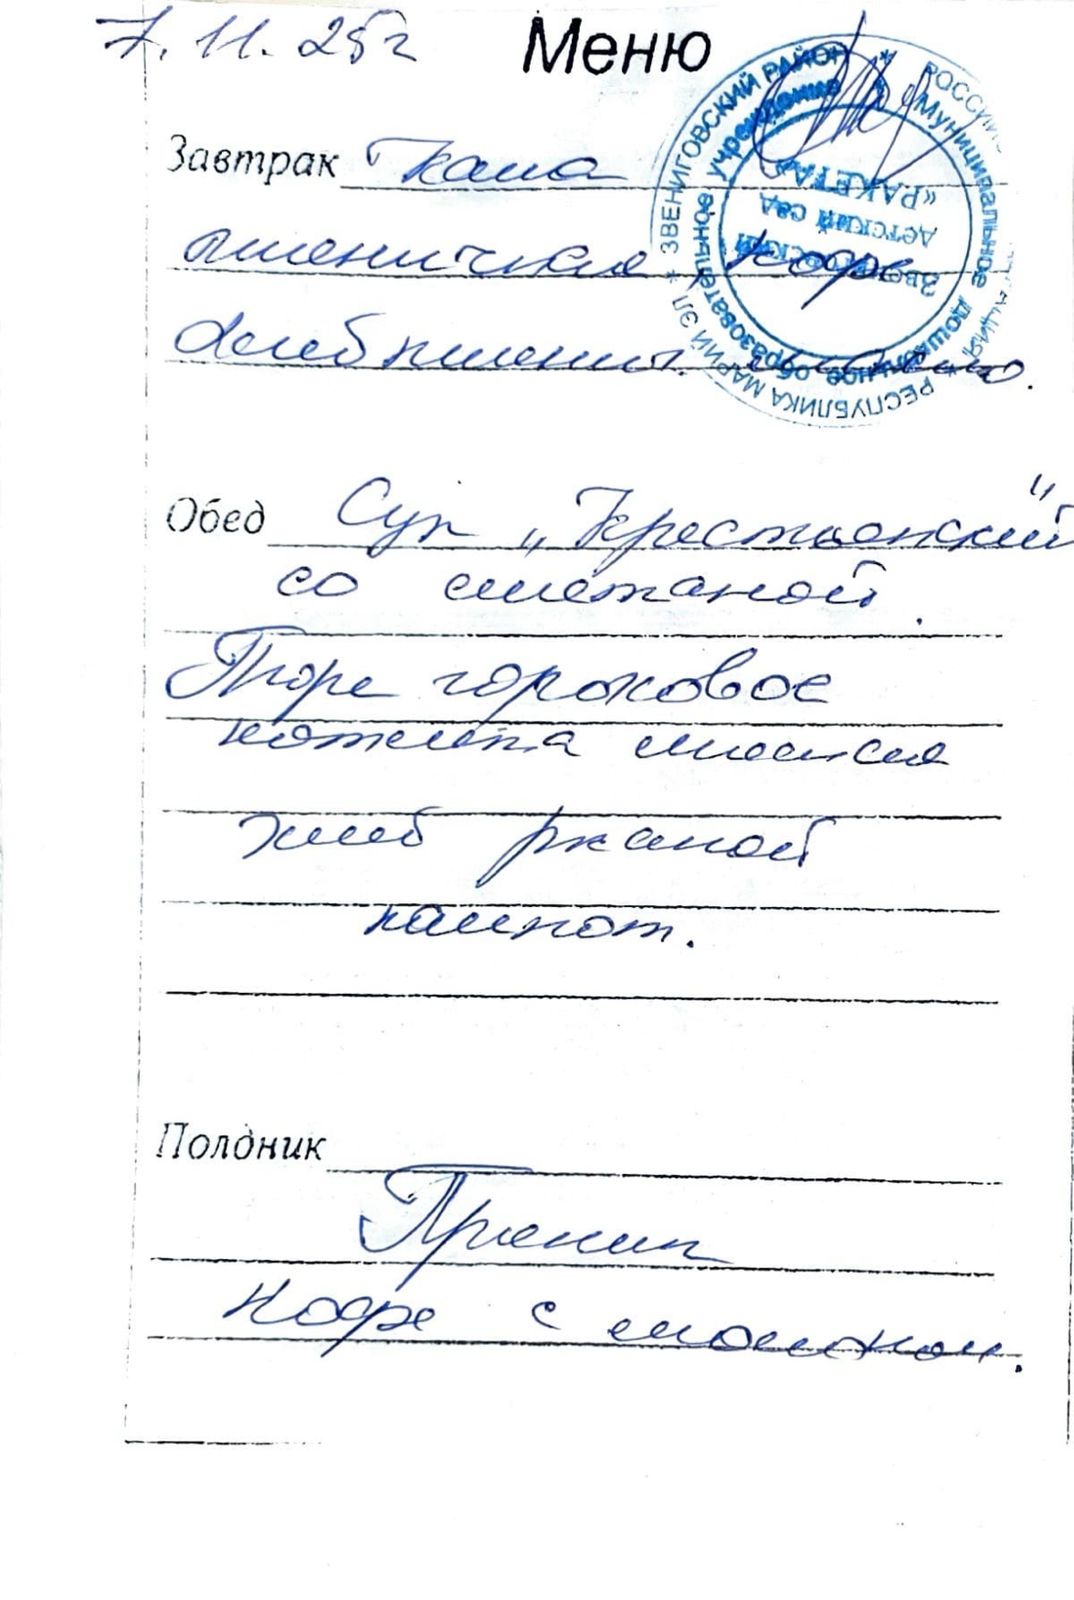 7.11.25г Меню
Завтрак Каша
пшеничная, кофе
Хлеб пшенич. масло.
Обед Суп „Крестьянский"
со сметаной.
Пюре гороховое
котлета мясная
хлеб ржаной
компот.
Полдник
Пряник
Кофе с молоком.
РОССИЙСКАЯ ФЕДЕРАЦИЯ * РЕСПУБЛИКА МАРИЙ ЭЛ * ЗВЕНИГОВСКИЙ РАЙОН *
Муниципальное дошкольное образовательное учреждение
Звениговский
детский сад
«РАКЕТА»